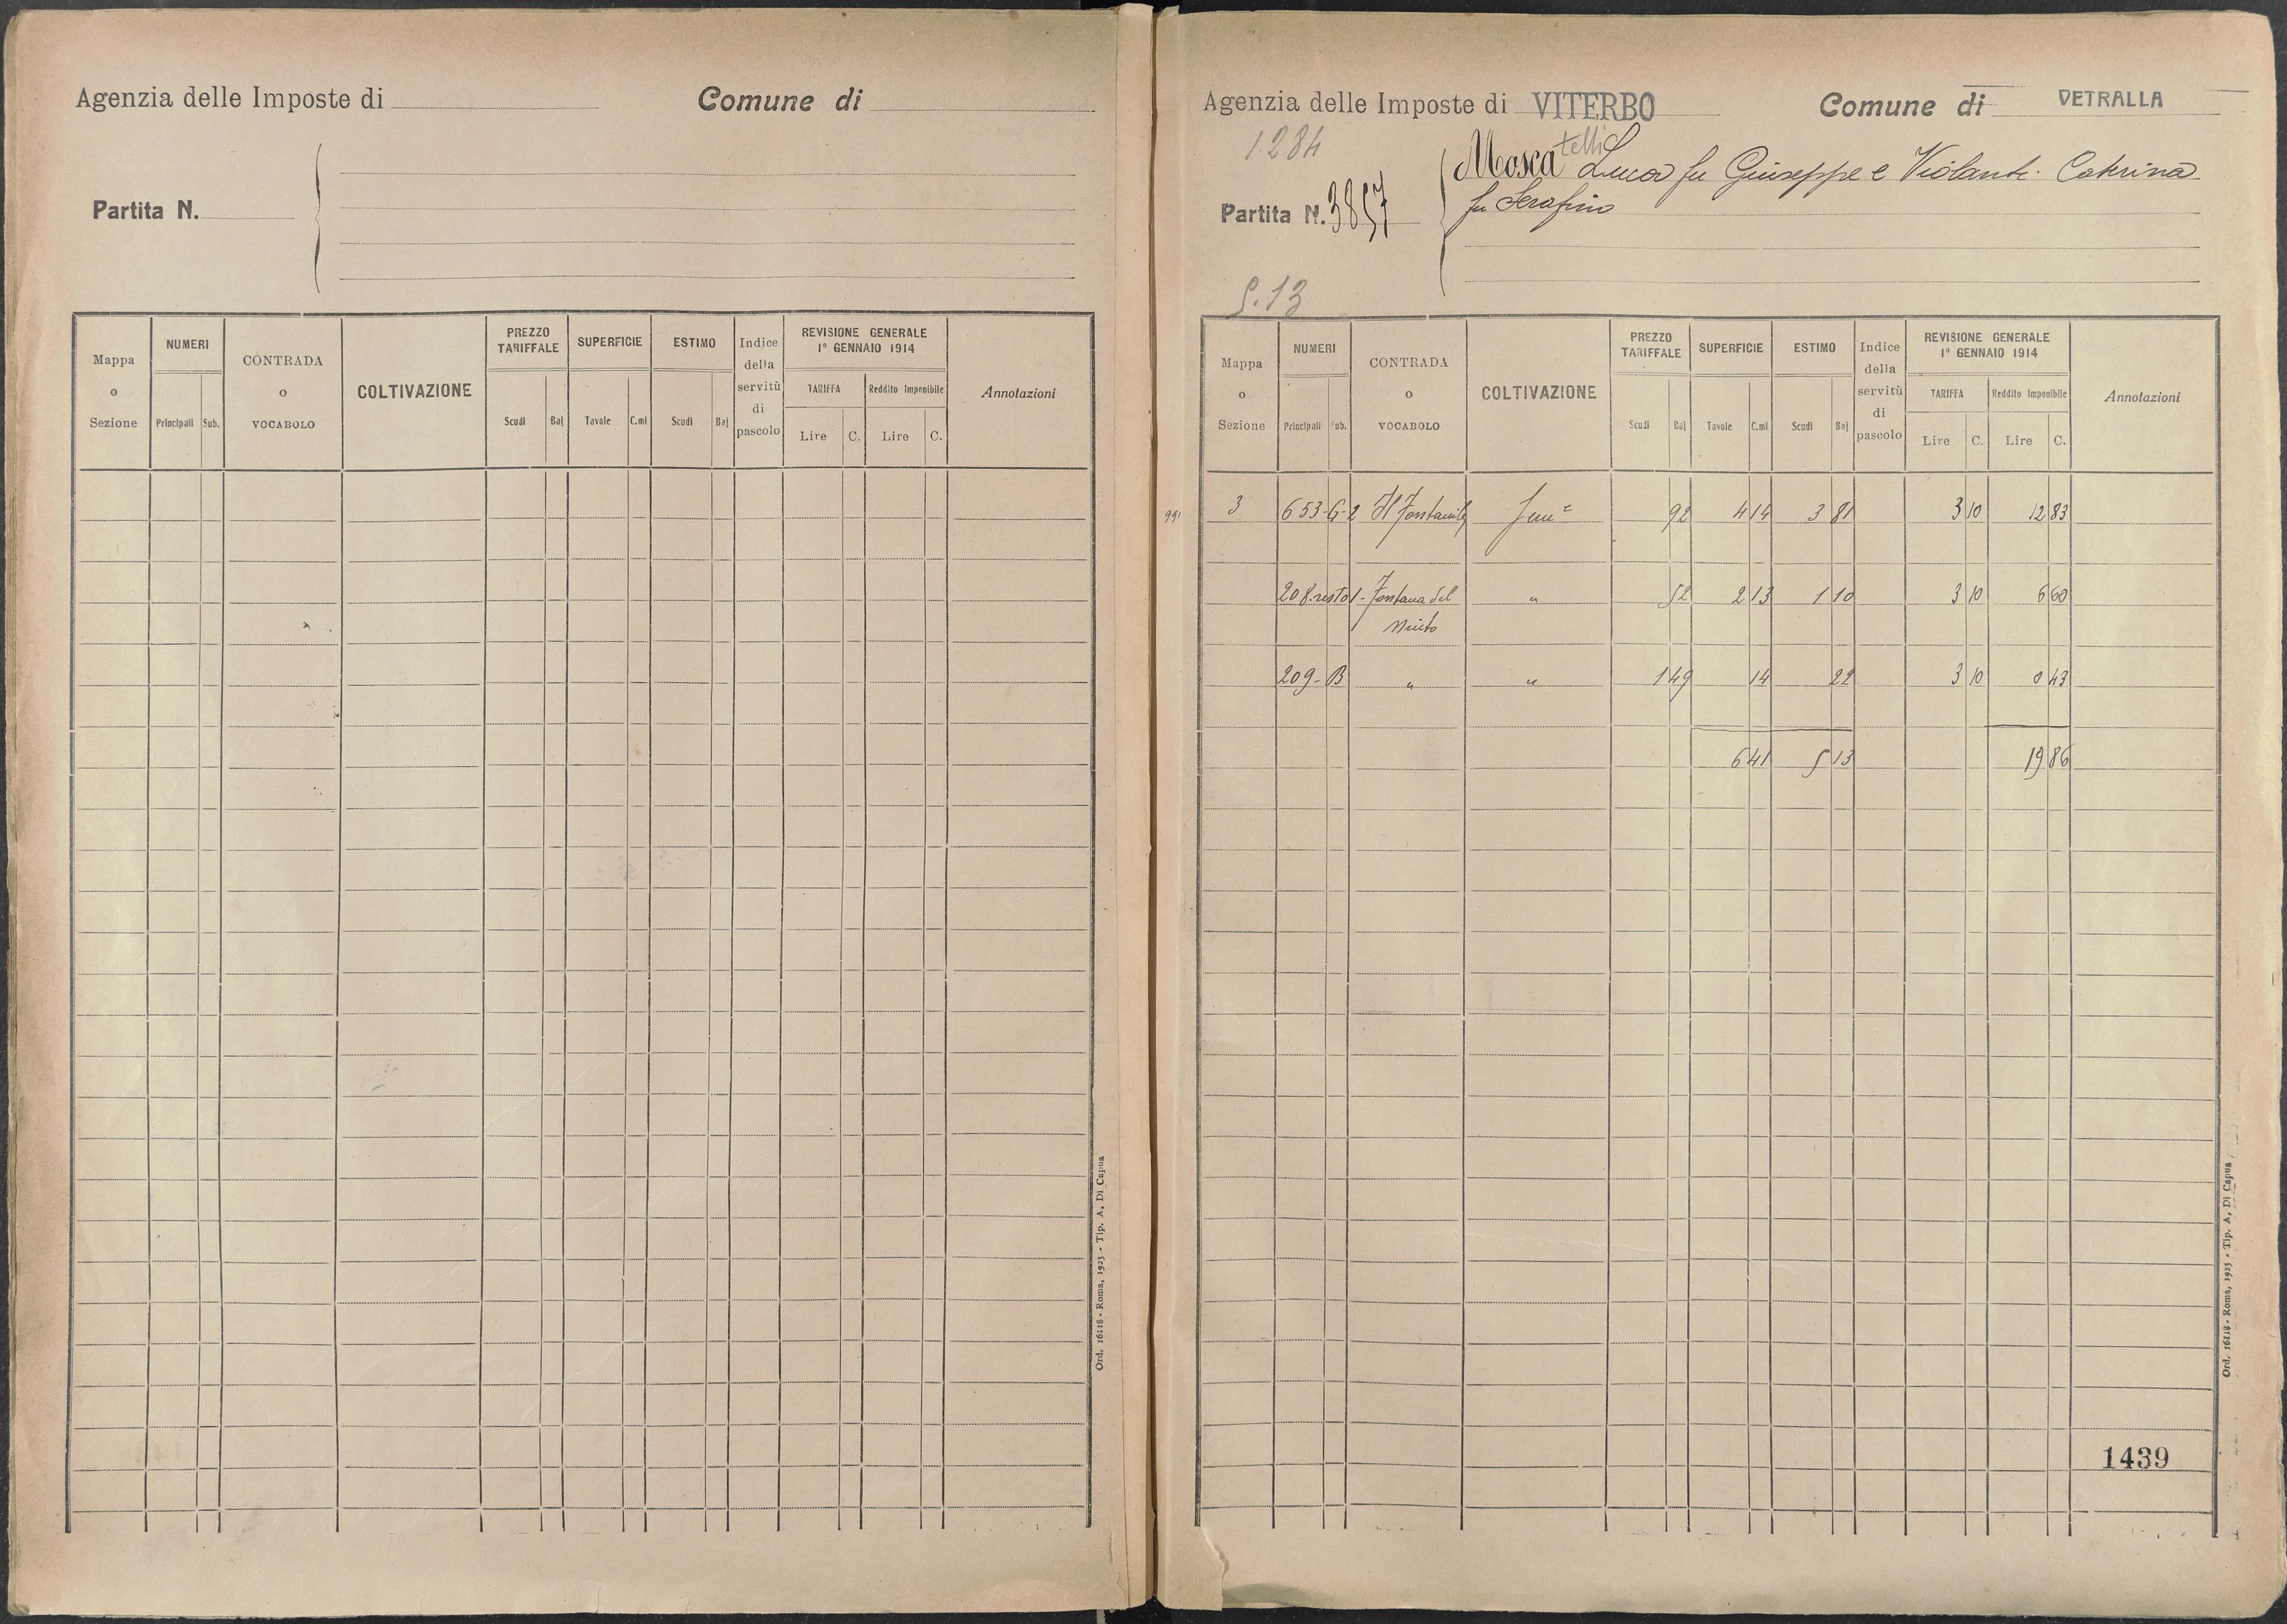 Agenzia delle Imposte di
Comune di
Partita N.
Mappa o Sezione
NUMERI
Principali
Sub.
CONTRADA o VOCABOLO
COLTIVAZIONE
PREZZO TARIFFALE
Scudi
Baj
SUPERFICIE
Tavole
C.mi
ESTIMO
Scudi
Baj
Indice della servitù di pascolo
REVISIONE GENERALE
1° GENNAIO 1914
TARIFFA
Reddito Imponibile
Lire
C.
Lire
C.
Annotazioni
Ord. 16118 - Roma, 1923 - Tip. A. Di Capua
Agenzia delle Imposte di VITERBO
Comune di VETRALLA
1284
Moscatelli Luca fu Giuseppe e Violante Caterina
fu Serafino
Partita N. 3857
5.13
Mappa o Sezione
NUMERI
Principali
Sub.
CONTRADA o VOCABOLO
COLTIVAZIONE
PREZZO TARIFFALE
Scudi
Baj
SUPERFICIE
Tavole
C.mi
ESTIMO
Scudi
Baj
Indice della servitù di pascolo
REVISIONE GENERALE
1° GENNAIO 1914
TARIFFA
Reddito Imponibile
Lire
C.
Lire
C.
Annotazioni
3 653-G-2 Il Fontanile 92 4 14 3 81 3 10 12 83
208 resto 1- Fontana del " 52 2 13 1 10 3 10 6 60
209- B " " 1 49 14 22 3 10 0 43
6 41 5 13 19 86
1439
Ord. 16118 - Roma, 1923 - Tip. A. Di Capua